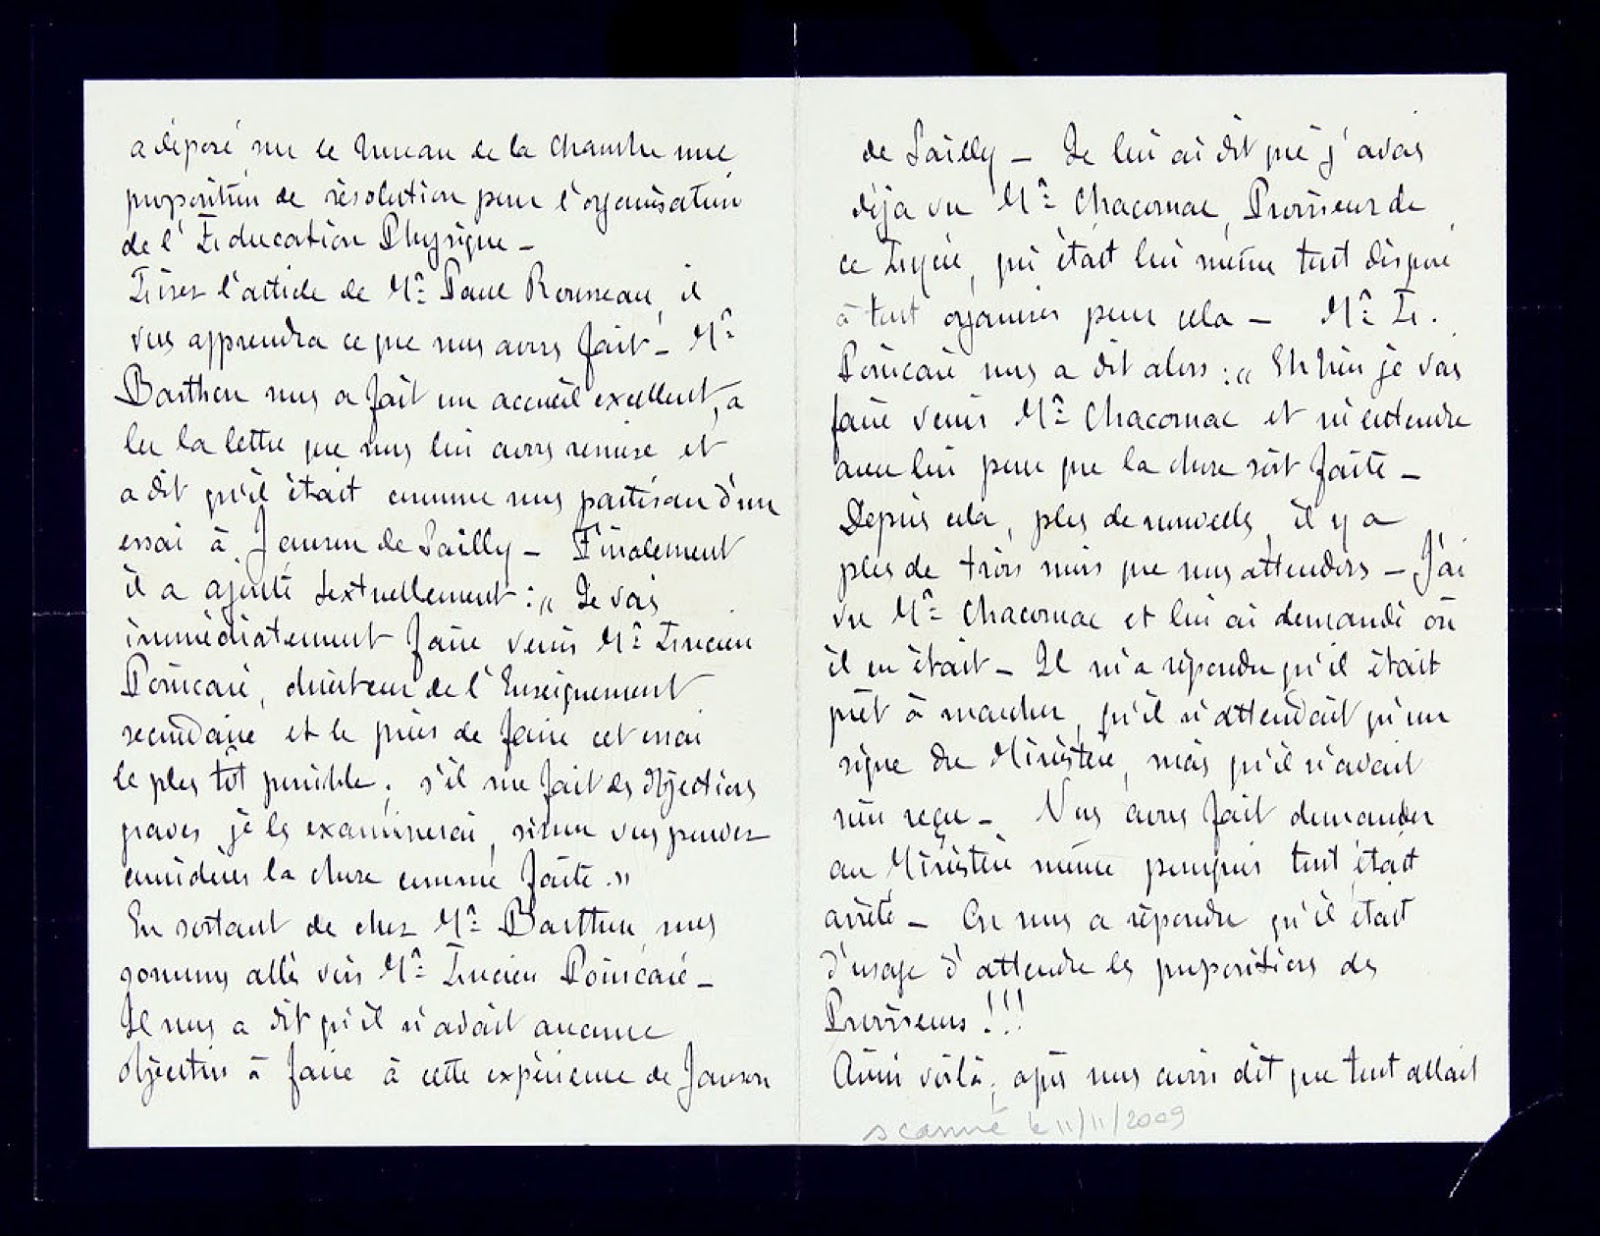 a déposé sur le bureau de la Chambre une
proposition de résolution pour l'organisation
de l'Education Physique –
Lisez l'article de Mr Paul Rousseau, il
vous apprendra ce que nous avons fait – Mr
Barthou nous a fait un accueil excellent, a
lu la lettre que nous lui avons remise et
a dit qu'il était comme nous partisan d'un
essai à Janson de Sailly – Finalement
il a ajouté textuellement : „ Je vais
immédiatement faire venir Mr Lucien
Poincaré, directeur de l'Enseignement
secondaire et le prier de faire cet essai
le plus tôt possible ; s'il me fait des objections
graves je les examinerai, sinon vous pouvez
considérer la chose comme faite. „
En sortant de chez Mr Barthou, nous
sommes allés voir Mr Lucien Poincaré –
Il nous a dit qu'il n'avait aucune
objection à faire à cette expérience de Janson
de Sailly – Je lui ai dit que j'avais
déjà vu Mr Chacornac, Proviseur de
ce Lycée, qui était lui même tout disposé
à tout organiser pour cela – Mr L.
Poincaré nous a dit alors : „ Eh bien je vais
faire venir Mr Chacornac et m'entendre
avec lui pour que la chose soit faite –
Depuis cela, plus de nouvelles, il y a
plus de trois mois que nous attendons – J'ai
vu Mr Chacornac et lui ai demandé où
il en était – Il m'a répondu qu'il était
prêt à marcher, qu'il n'attendait qu'un
signe du Ministère, mais qu'il n'avait
rien reçu – Nous avons fait demander
au Ministère même pourquoi tout était
arrêté – On nous a répondu qu'il était
d'usage d'attendre les propositions des
Proviseurs !!!
Ainsi voilà, après nous avoir dit que tout allait
scanné le 11/11/2009